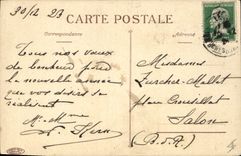 30/12 23
CARTE POSTALE
Correspondance
Adresse
Tous nos vœux
de bonheur pour
la nouvelle année
que vos désirs se
réalisent
M. Mme
Kern
Mesdames
Zurcher-Mallet
place Crousillat
Salon
(B-d-R)